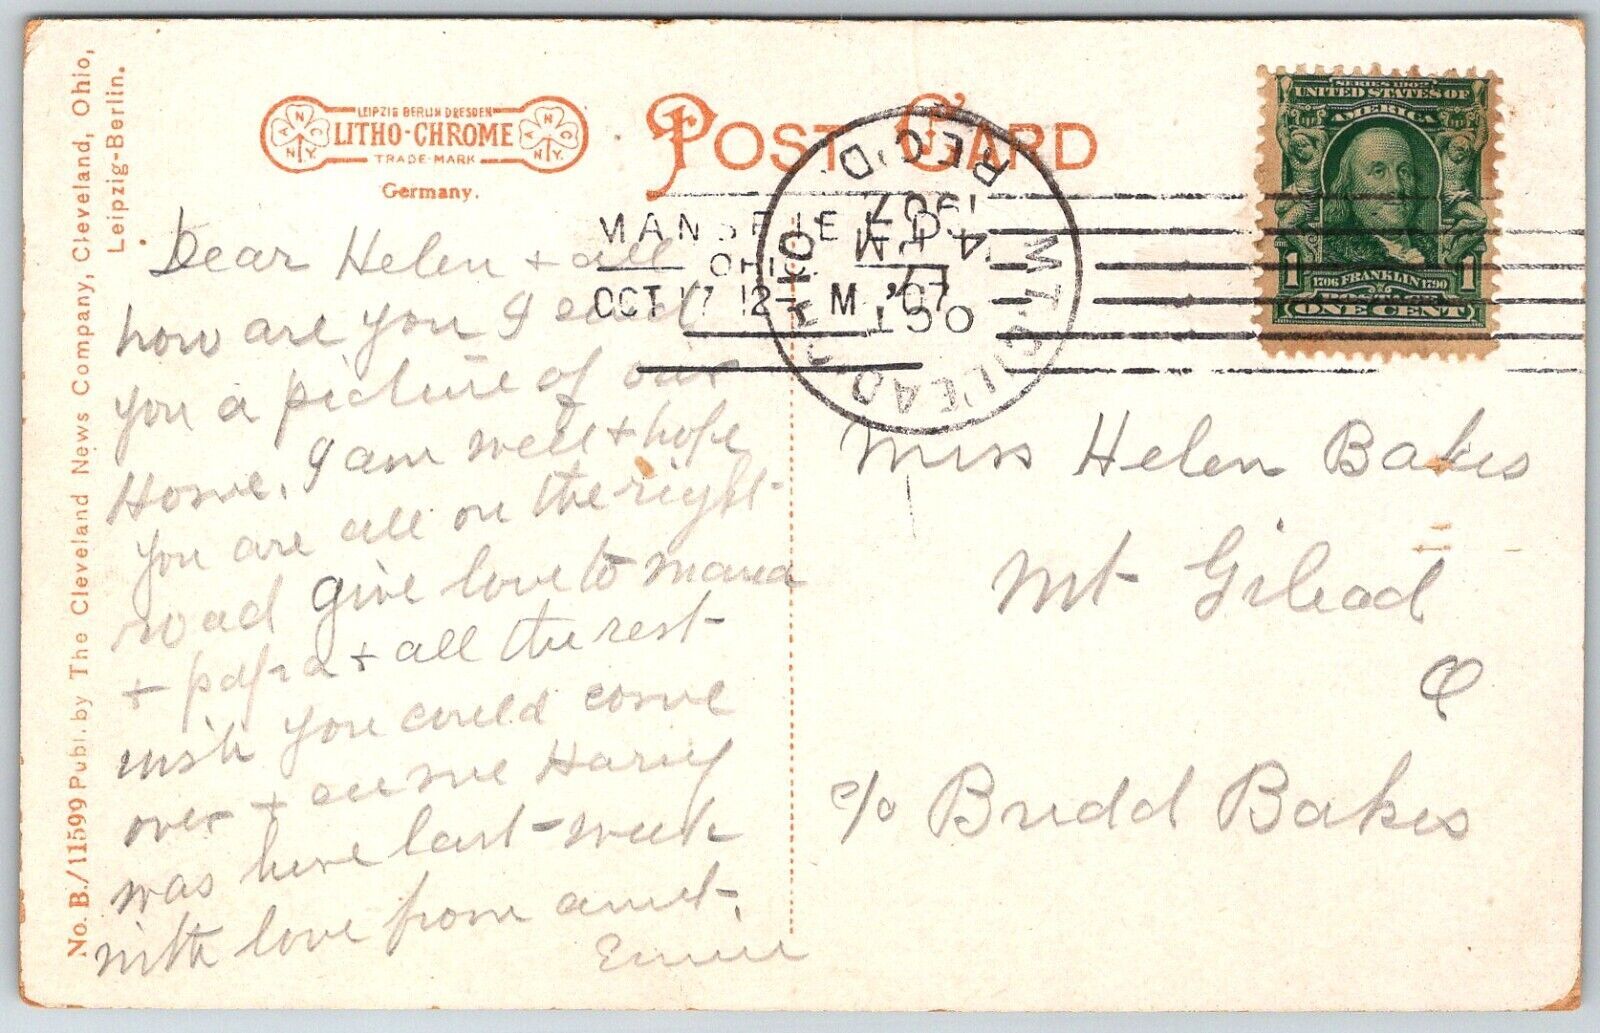 No. B./11599 Publ. by The Cleveland News Company, Cleveland, Ohio,
Leipzig-Berlin.
LEIPZIG BERLIN DRESDEN
LITHO-CHROME
TRADE-MARK
A N C N.Y.
A N C N.Y.
Germany.
POST CARD
MANSFIELD
OHIO
OCT 17 12 - M '07
MT. GILEAD, OHIO
OCT
17
4
1907
REC'D
SERIES 1902
UNITED STATES OF
AMERICA
1 1706 FRANKLIN 1790 1
POSTAGE
ONE CENT
Dear Helen + all
how are you I send
you a picture of our
Home. I am well + hope
you are all on the right
road give love to mama
+ papa + all the rest
wish you could come
over + see me Harry
was here last week
with love from aunt.
Miss Helen Bakes
Mt Gilead
O
c/o Budd Bakes